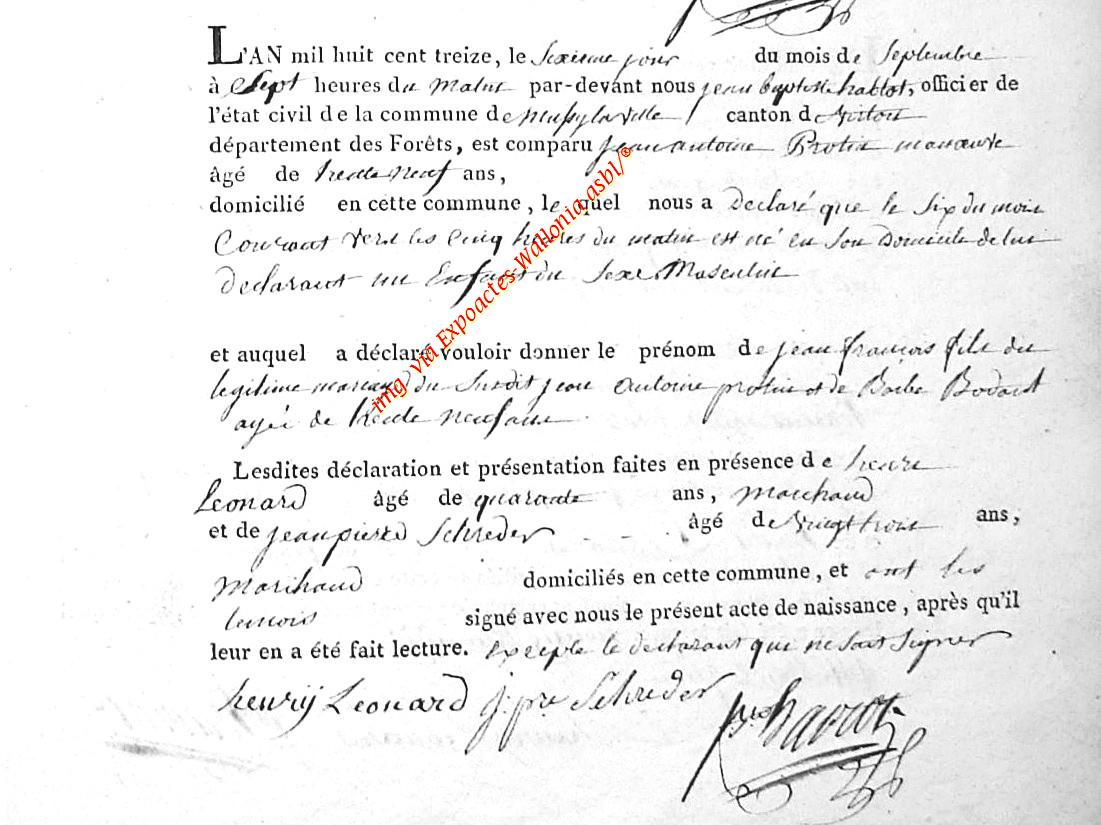 L'AN mil huit cent treize, le Sixieme jour du mois de Septembre
à Sept heures du matin par-devant nous jean baptiste habbot, officier de
l'état civil de la commune de mussy la ville canton de Virton
département des Forêts, est comparu jean antoine Protin manœuvre
âgé de trente neuf ans,
domicilié en cette commune, lequel nous a declaré que le Six du mois
Courant vers les Cinq heures du matin est né en Son Domicile de lui
declarant un Enfant du Sexe Masculin
et auquel a déclaré vouloir donner le prénom de jean françois fils du
legitime mariage du Susdit jean antoine protin et de Barbe Bodart
agée de trente neuf ans
Lesdites déclaration et présentation faites en présence de henri
Leonard âgé de quarante ans, marchand
et de jean pierre Schreder âgé de vingt trois ans,
Marchand domiciliés en cette commune, et ont les
temois signé avec nous le présent acte de naissance, après qu'il
leur en a été fait lecture. Excepte le declarant que ne sait signer
henrij Leonard j. pre Schreder
img via Expoactes-Wallonia.asbl/©